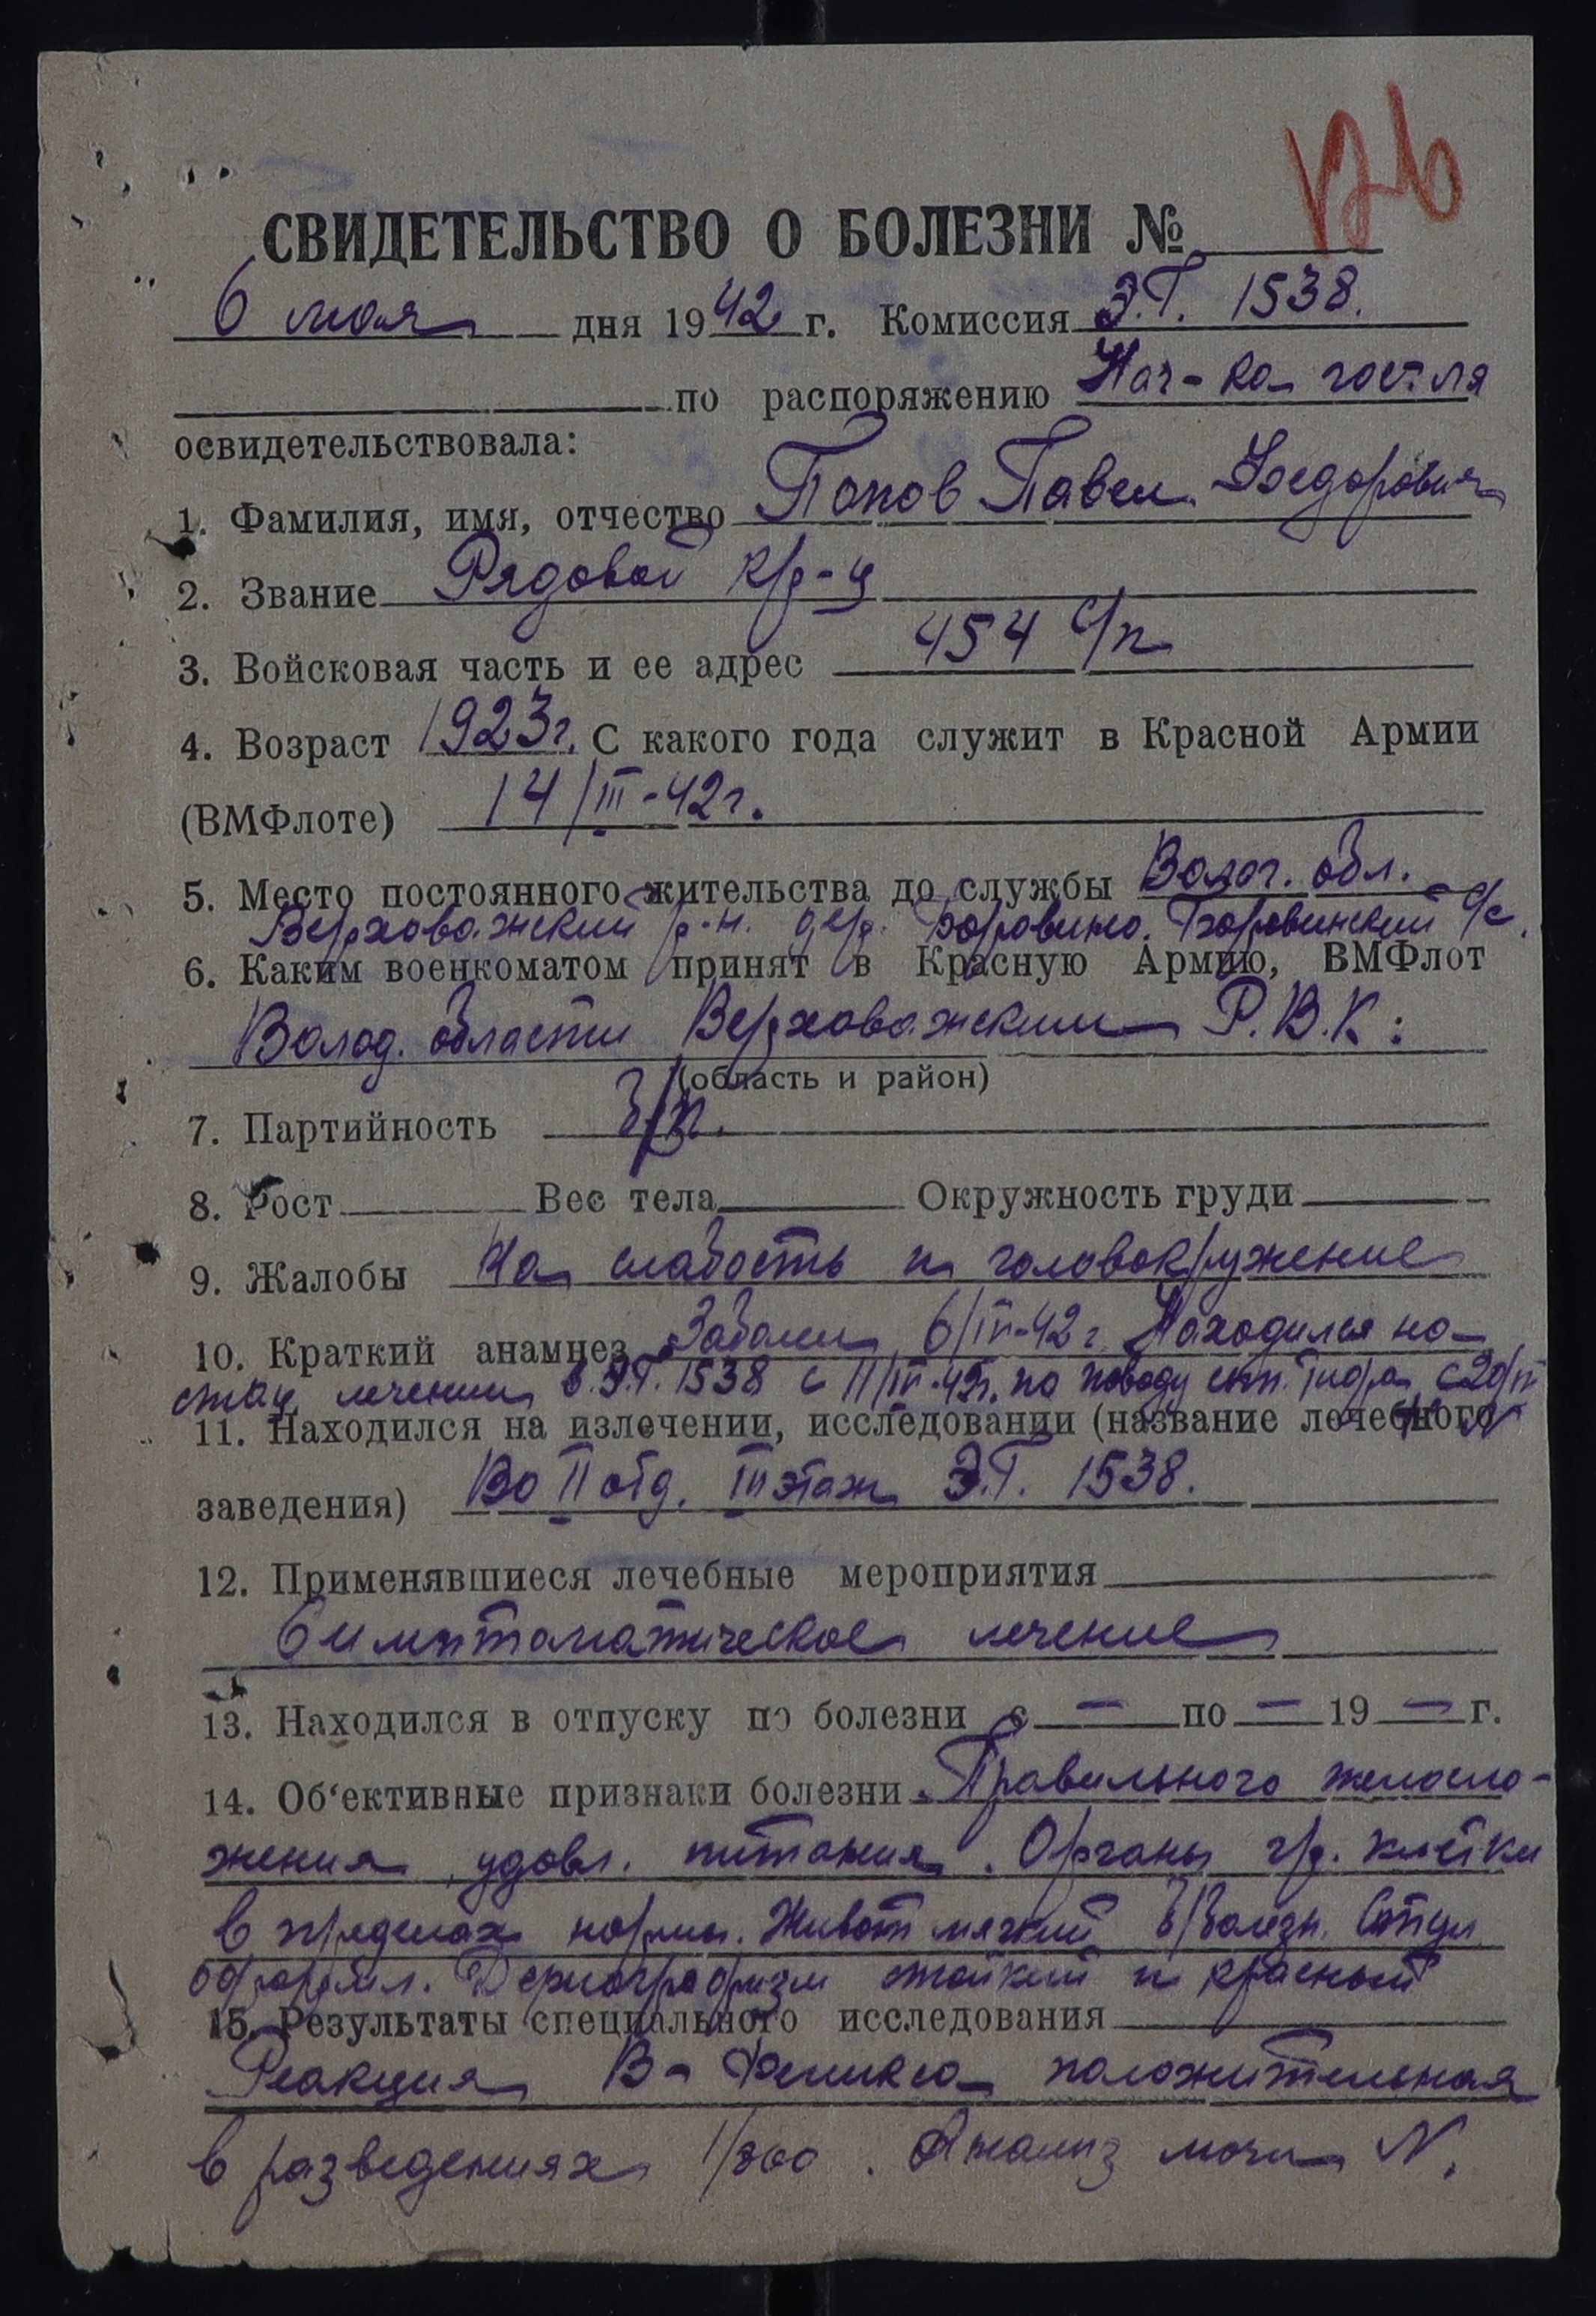 126
СВИДЕТЕЛЬСТВО О БОЛЕЗНИ №
6 мая дня 1942 г. Комиссия Э.Г. 1538.
по распоряжению Нач-ка гост-ля
освидетельствовала:
1. Фамилия, имя, отчество Попов Павел Феодорович
2. Звание Рядовой кр-ц
3. Войсковая часть и ее адрес 454 с/п
4. Возраст 1923г. С какого года служит в Красной Армии
(ВМФлоте) 14/III-42г.
5. Место постоянного жительства до службы Волог. обл.
Верховажский р-н. дер. Боровино. Боровинский с/с.
6. Каким военкоматом принят в Красную Армию, ВМФлот
Волод. области Верховажским Р.В.К.
(область и район)
7. Партийность б/п.
8. Рост Вес тела Окружность груди
9. Жалобы На слабость и головокружение
10. Краткий анамнез Заболел 6/IV-42г. Находился на
стац. лечении в Э.Г. 1538 с 11/IV-42г. по поводу сып. тифа с 20/IV
11. Находился на излечении, исследовании (название лечебного
заведения) Во II отд. III этаж Э.Г. 1538.
12. Применявшиеся лечебные мероприятия
Симптоматическое лечение
13. Находился в отпуску по болезни с — по — 19 — г.
14. Об'ективные признаки болезни Правильного телосло-
жения, удовл. питания. Органы гр. клетки
в пределах нормы. Живот мягкий б/болезн. Стул
оформл. Дермографизм стойкий и красный
15. Результаты специального исследования
Реакция В-Феликса положительная
в разведениях 1/800. Анализ мочи N.